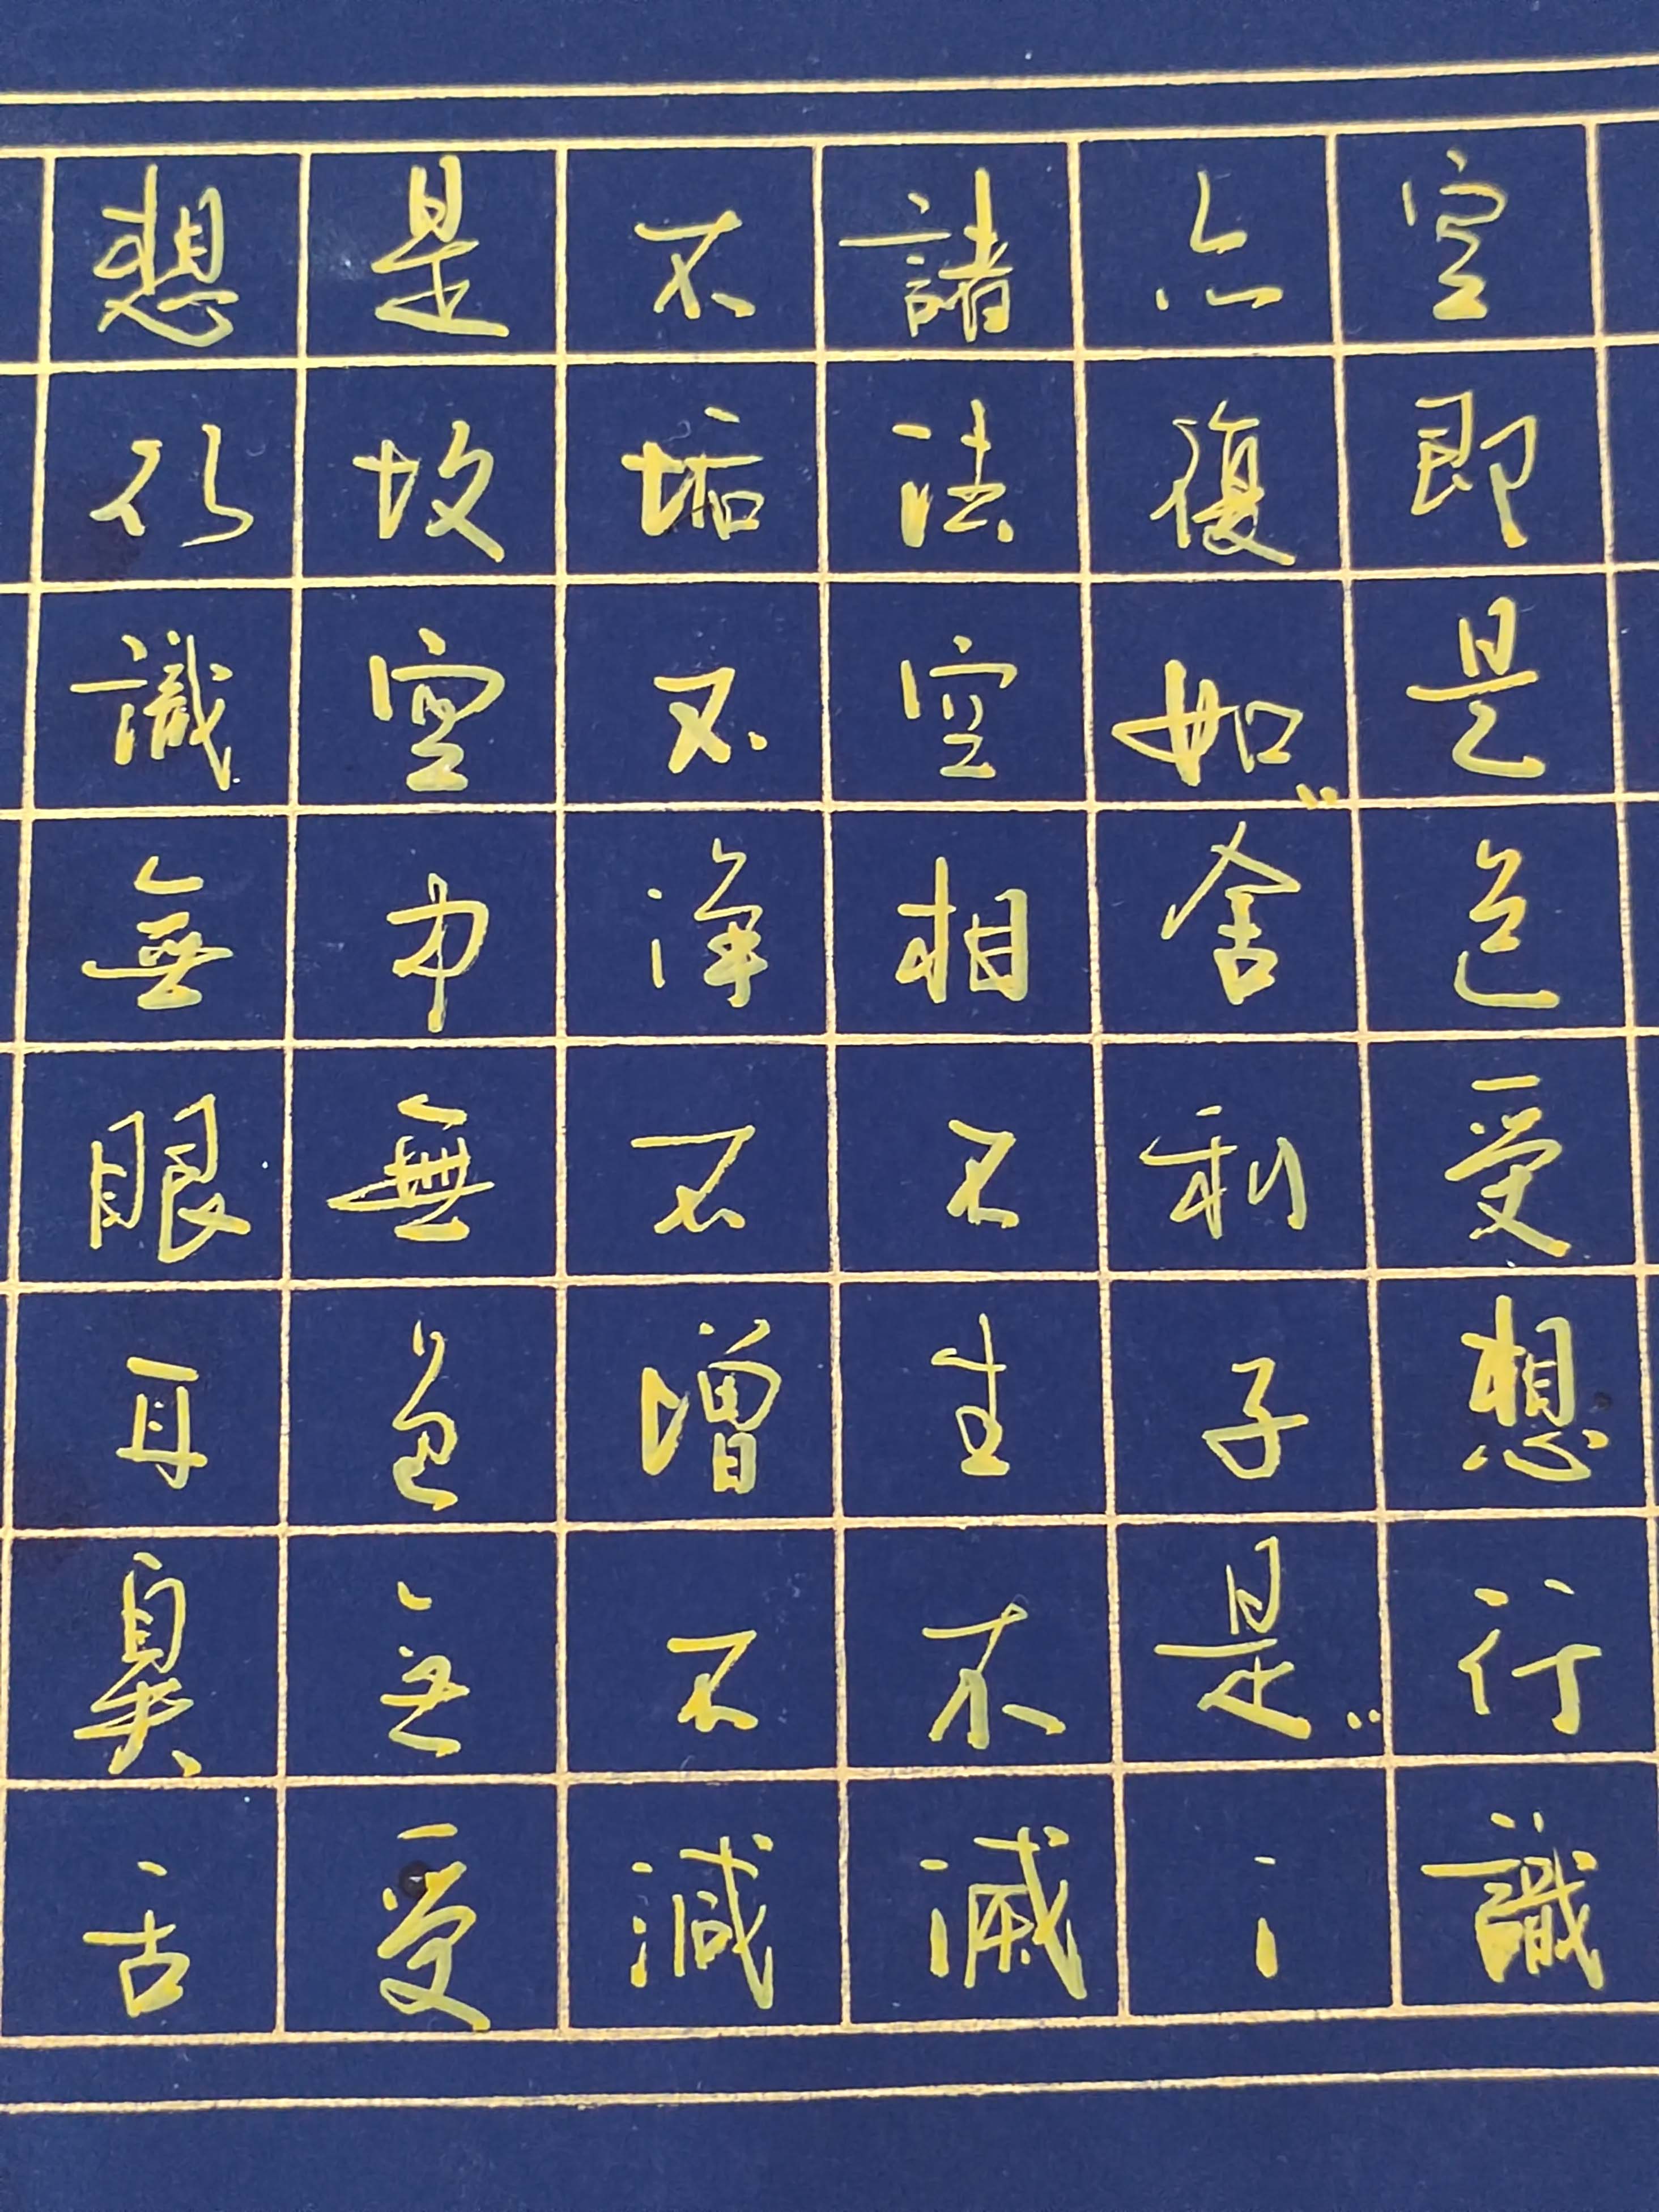 空即是色受想行識
亦復如舍利子是
諸法空相不生不滅
不垢不淨不增不減
是故空中無色無受
想行識無眼耳鼻舌